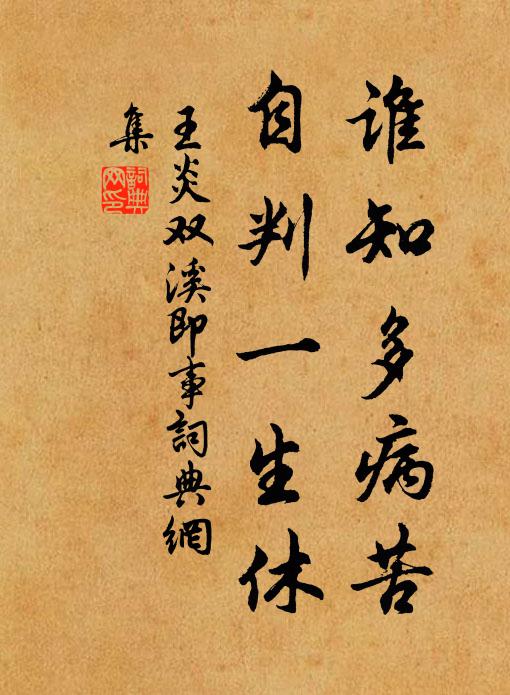 谁知多病苦
自判一生休
王炎双溪即事詞典網
集
詞典
网印